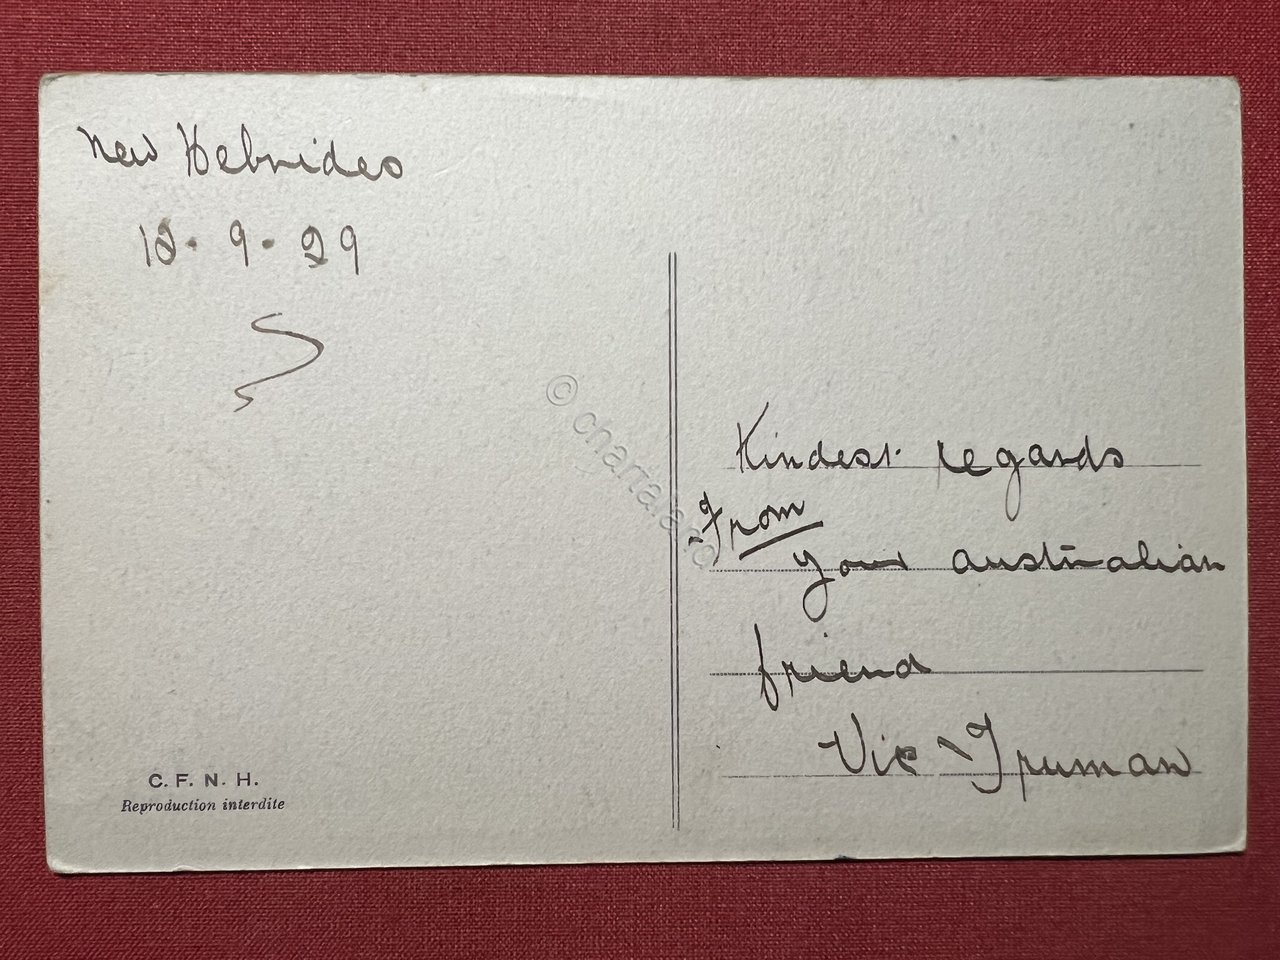 New Hebrides
12. 9. 29
C. F. N. H.
Reproduction interdite
Kindest regards
From
your Australian
friend
Vic Truman